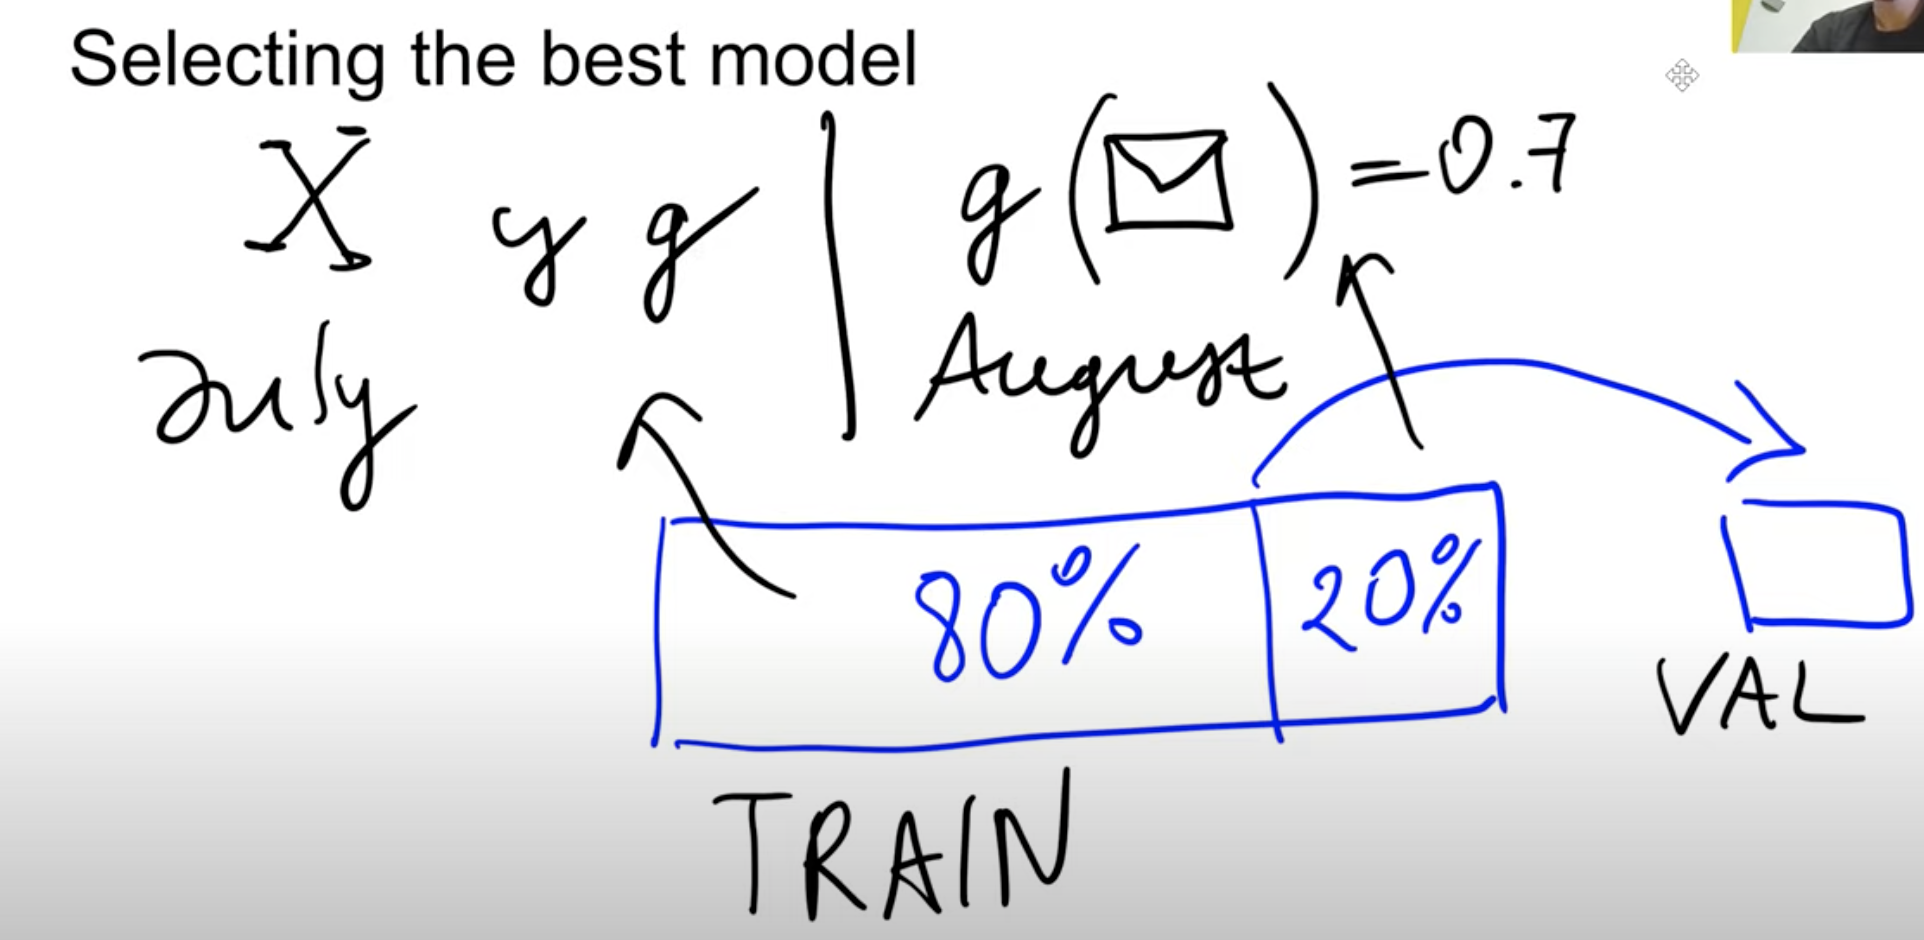 Selecting the best model
X y g
g( ) = 0.7
July
August
80% 20%
TRAIN
VAL